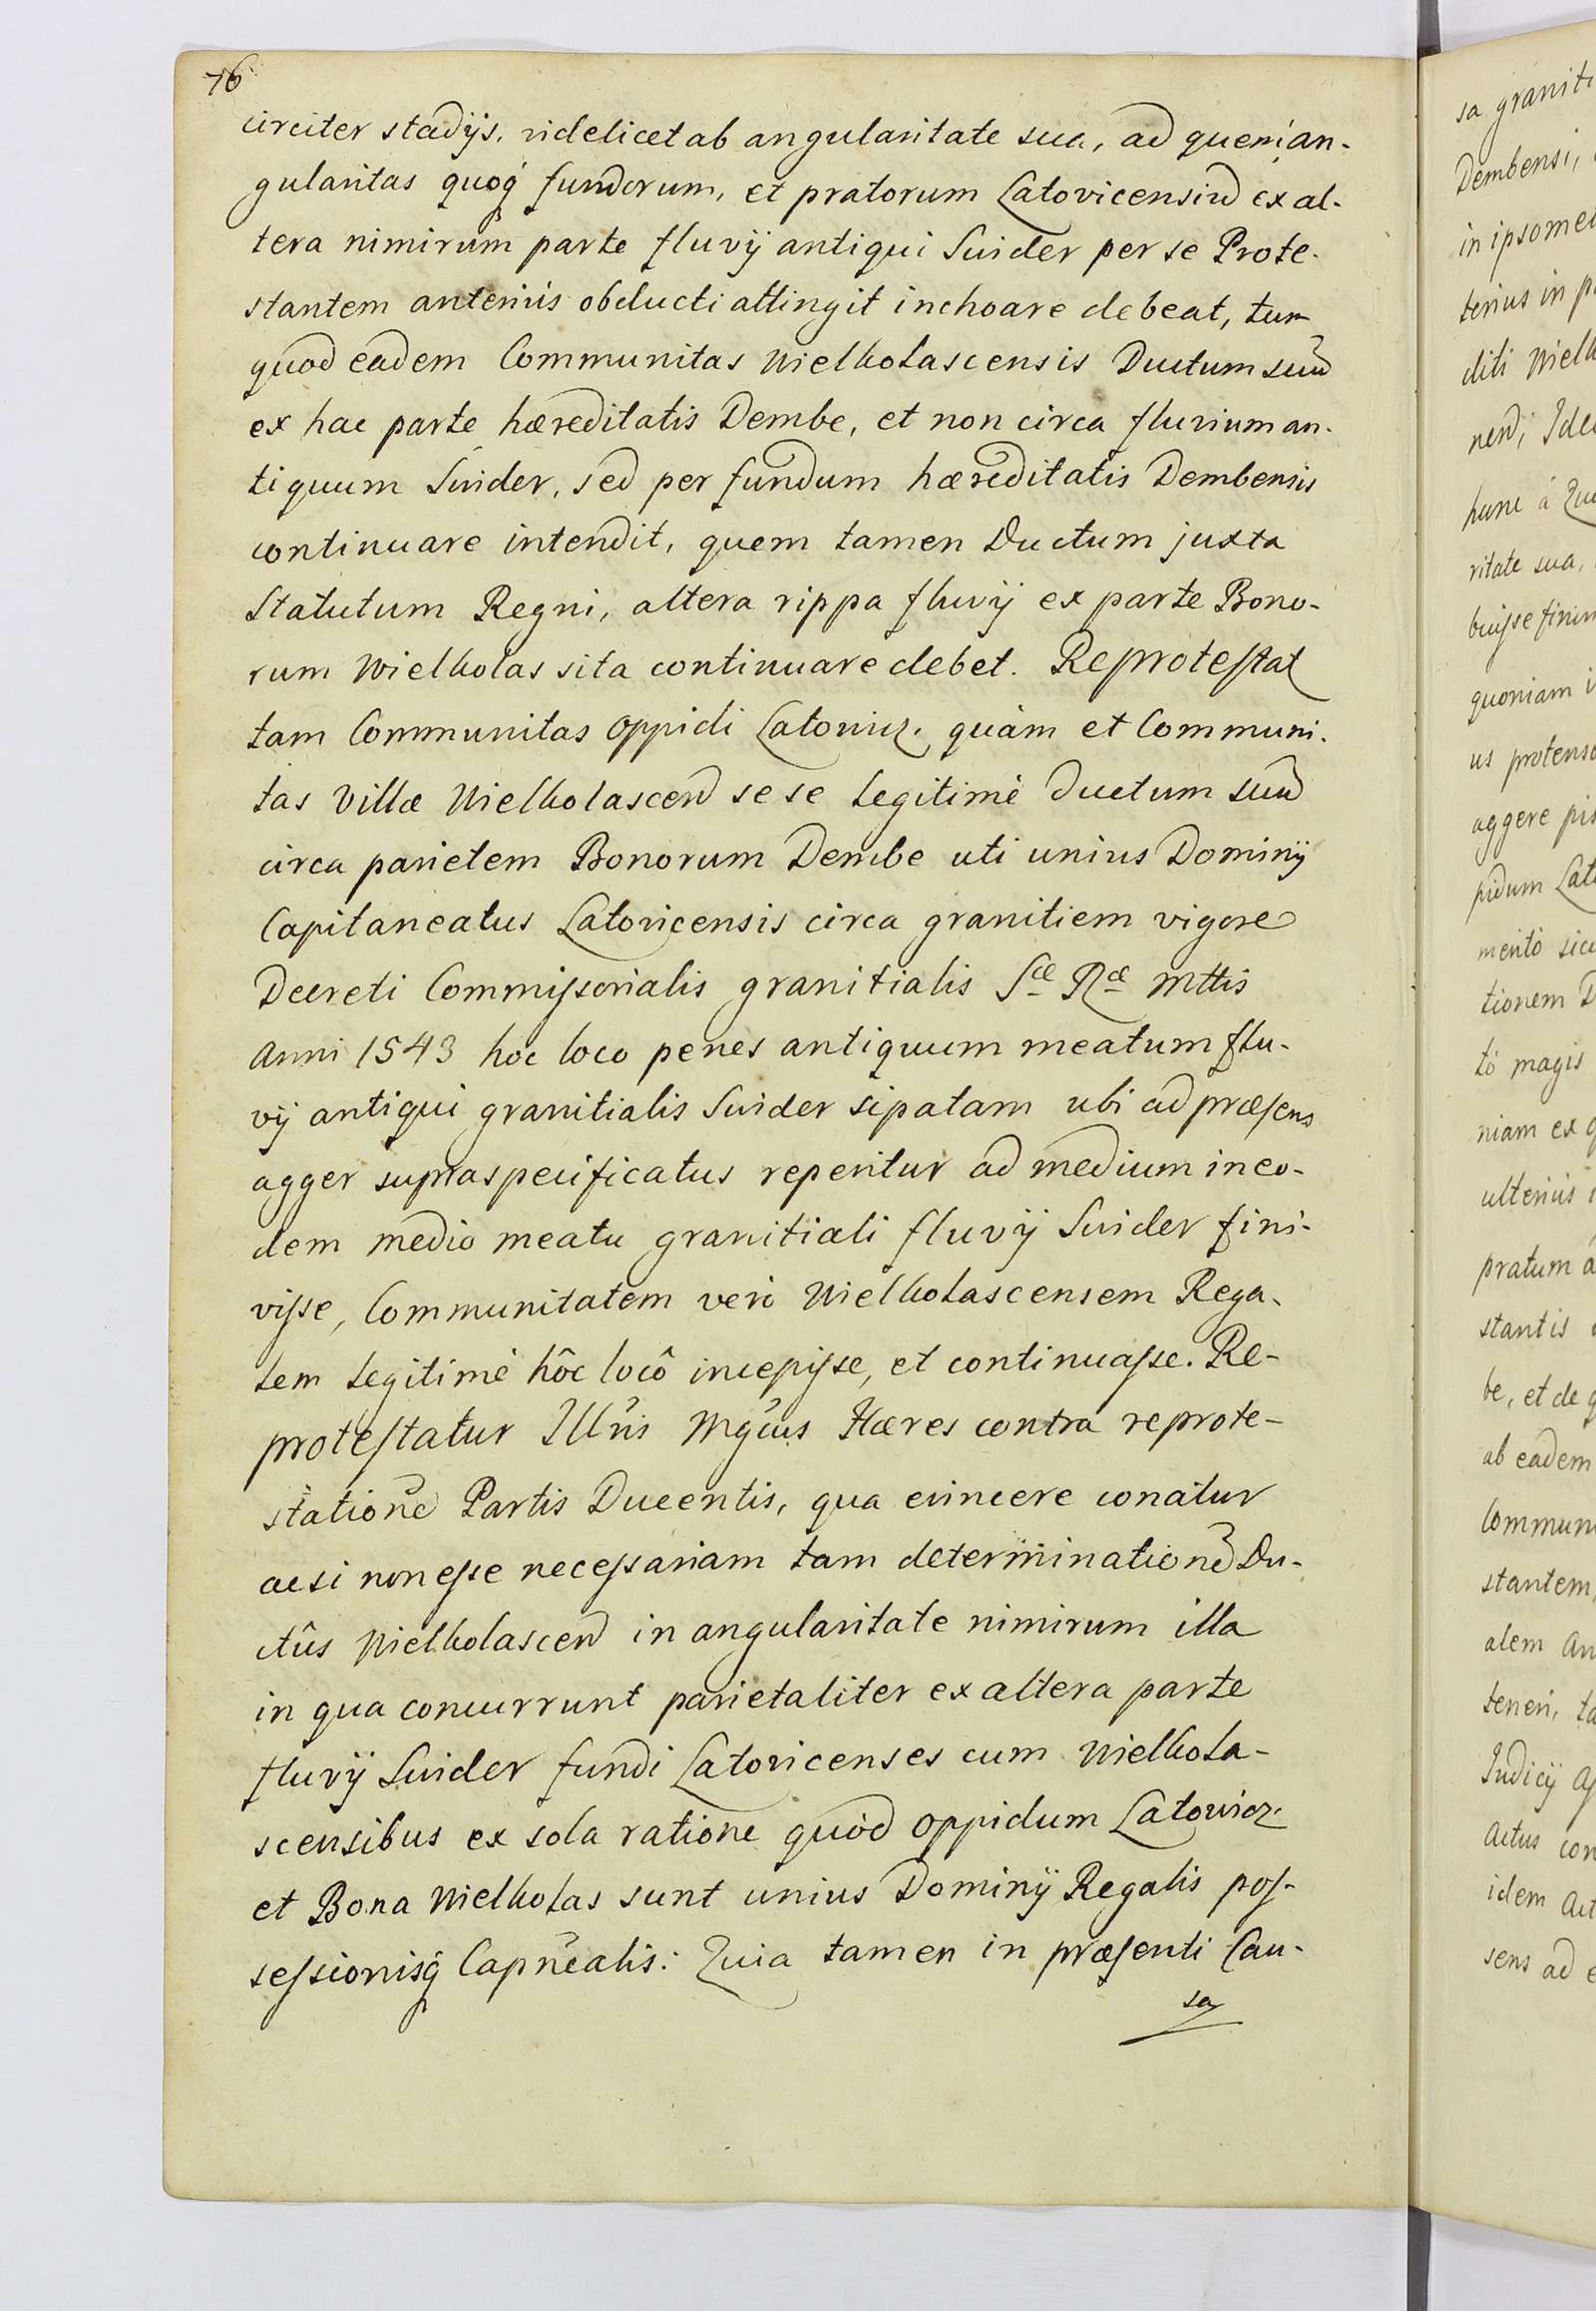 76
circiter stadijs, videlicet ab angularitate sua, ad quem an-
gularitas quoq́ fundorum, et pratorum Latovicensiu͂ ex al-
tera nimirum parte fluvij antiqui Suider per se Prote-
stantem anterius obducti attingit inchoare debeat, tum
quod eadem Communitas Wielkolascensis Ductum suu͂
ex hac parte hæreditatis Dembe, et non circa fluvium an-
tiquum Suider, sed per fundum hæreditatis Dembensis
continuare intendit, quem tamen Ductum juxta
Statutum Regni, altera rippa fluvij ex parte Bono-
rum Wielkolas sita continuare debet. Reprotestat
tam Communitas Oppidi Latowicz. quàm et Communi-
tas Villæ Wielkolascen͂ sese legitimè ductum suu͂
circa parietem Bonorum Dembe uti unius Dominij
Capitaneatus Latovicensis circa granitiem vigore
Decreti Commissorialis granitialis Sæ Ræ Mttis
Anni 1543 hoc loco penes antiquum meatum flu-
vij antiqui granitialis Suider sipatam ubi ad præsens
agger supraspecificatus reperitur ad medium in eo-
dem medio meatu granitiali fluvij Suider fini-
visse, Communitatem verò Wielkolascensem Rega-
lem legitimè hôc locô incepisse, et continuasse. Re-
protestatur Illr̃is Mgcus Hæres contra reprote-
statione͂ Partis Ducentis, qua evincere conatur
acsi non esse necessariam tam determinatione͂ Du-
ctûs Wielkolascen͂ in angularitate nimirum illa
in qua concurrunt parietaliter ex altera parte
fluvij Suider fundi Latovicenses cum Wielkola-
scensibus ex sola ratione quòd Oppidum Latowicz
et Bona Wielkolas sunt unius Dominij Regalis pos-
sessionisq́ Capnẽalis: Quia tamen in præsenti Cau-
sa
sa graniti
Dembensi,
in ipsomet
terius in p
diti Wielk
hunc à
ritate sua,
buisse finin
quoniam i
us protenso
aggere pis
pidum Lato
meritò sicu
tionem D
tò magis
niam ex q
ulterius i
pratum a
stantis
be, et de q
ab eadem
Commun
stantem,
alem An
teneri, ta
Judicij A
Actus con
idem Act
sens ad e